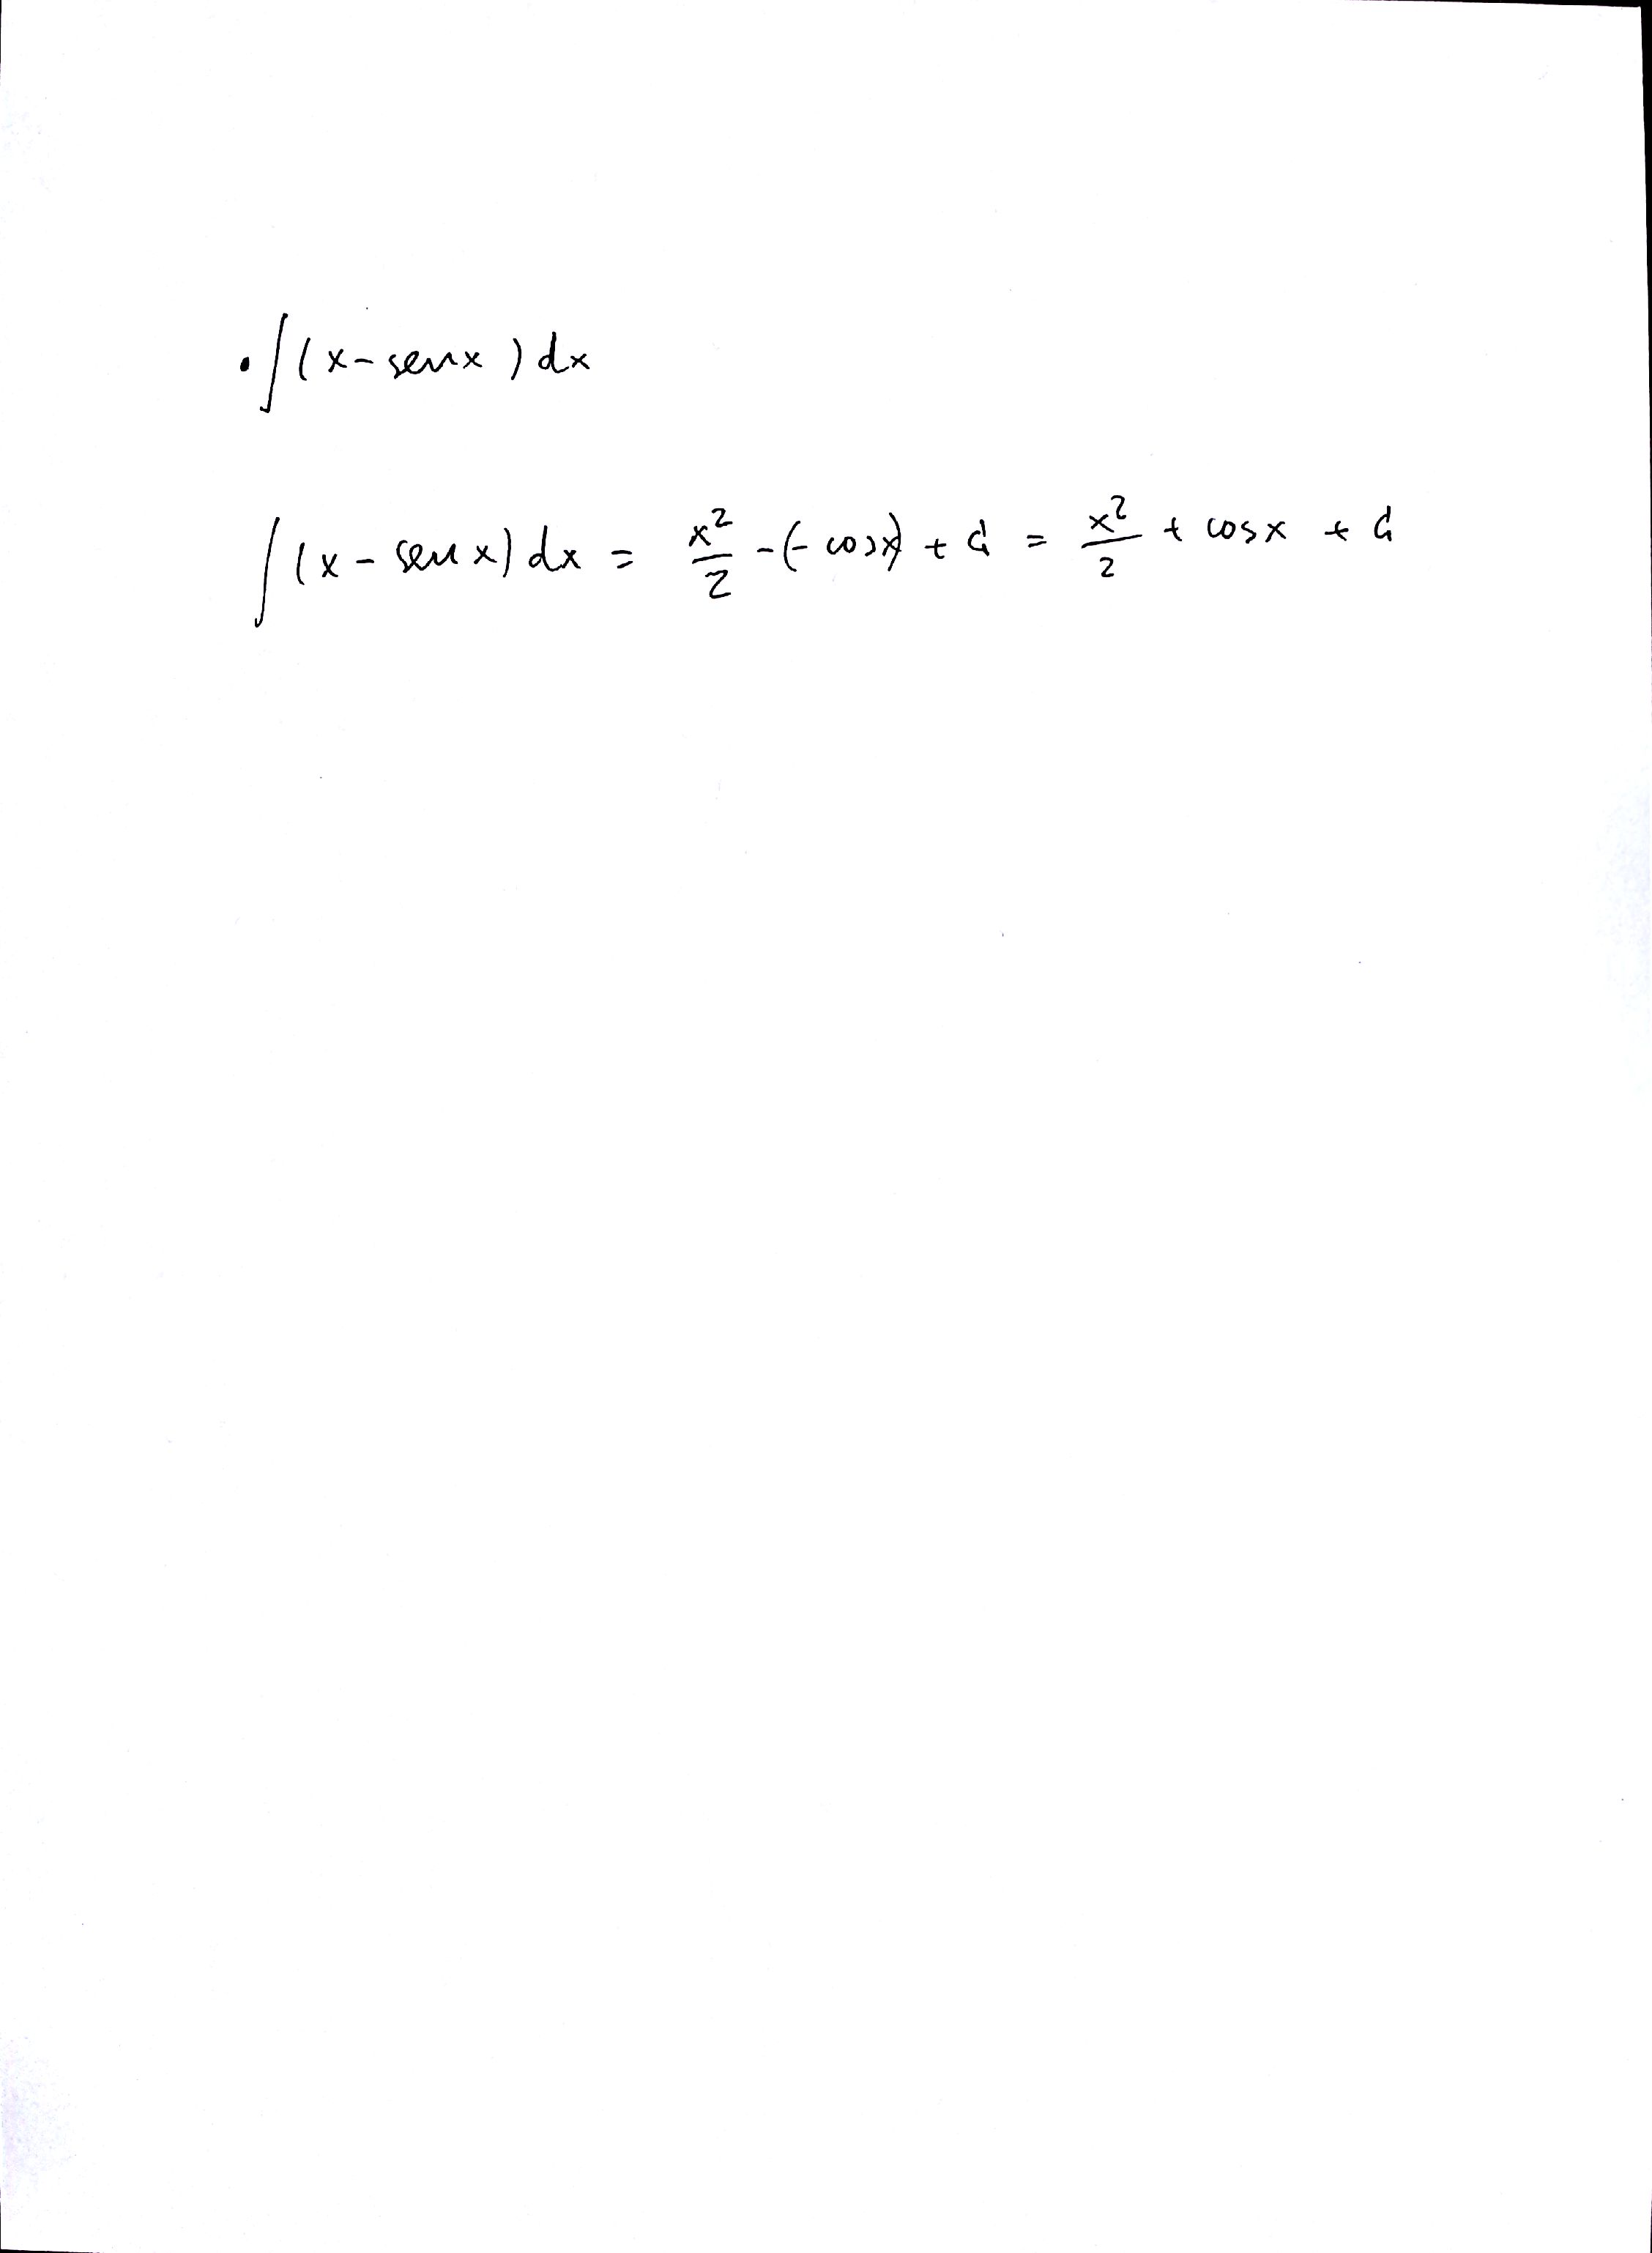 • ∫(x - senx) dx
∫(x - sen x) dx = x²/2 - (- cosx) + C = x²/2 + cosx + C